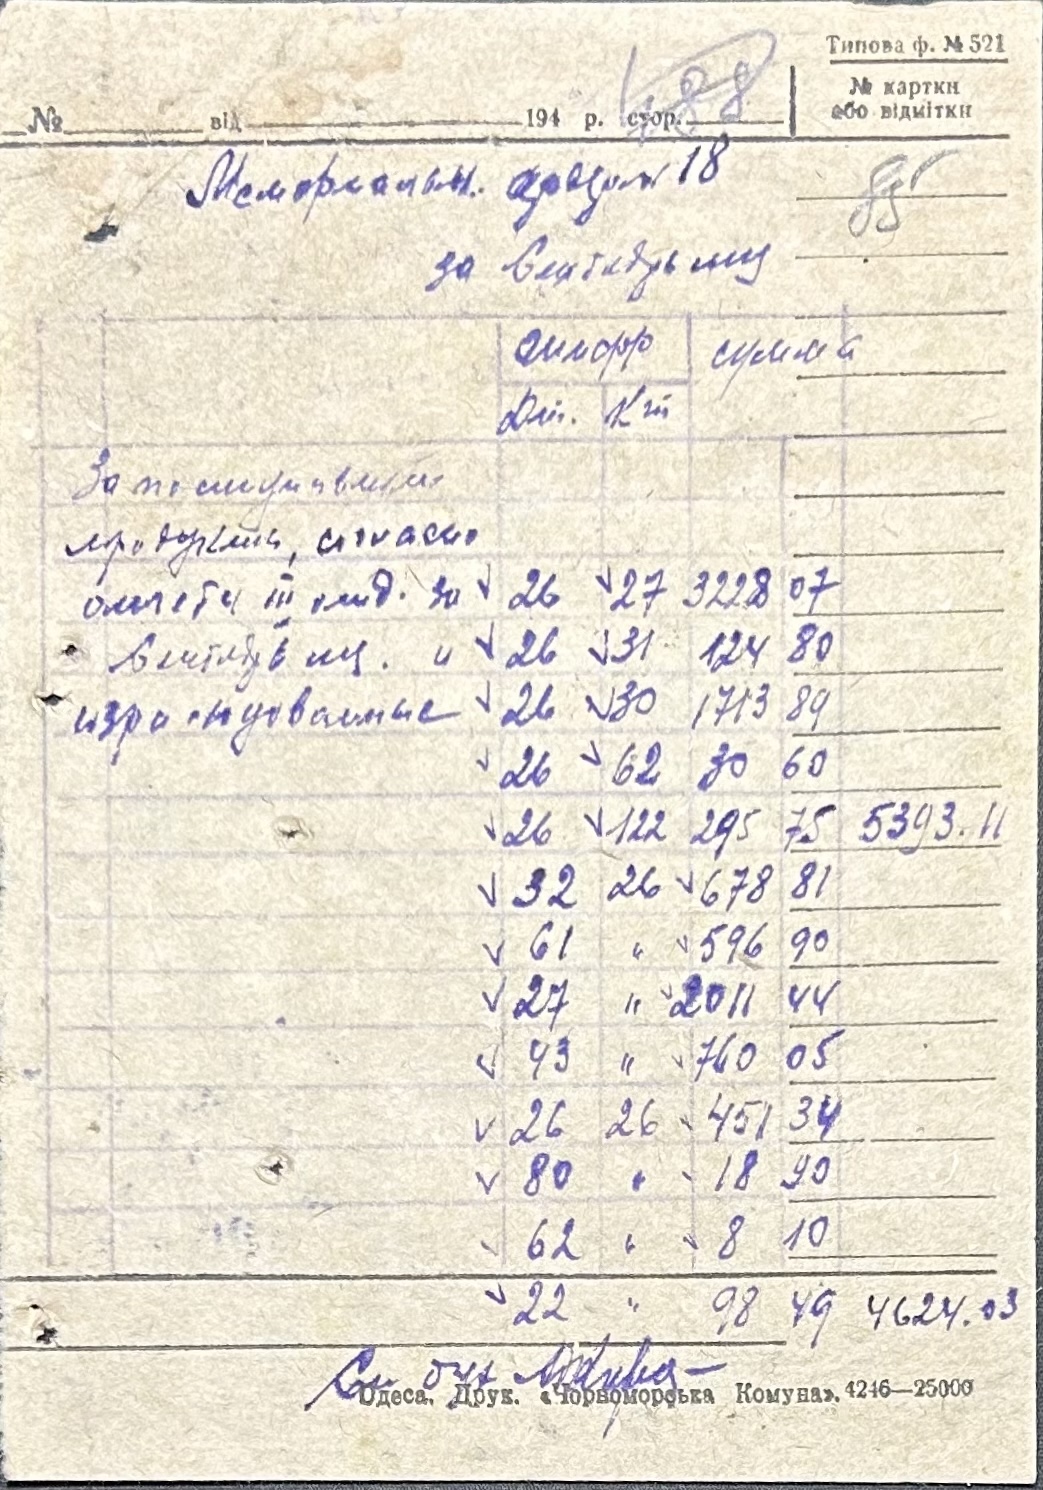 Типова ф. № 521
№ картки
або відмітки
№ від 194 р. стор. 88
85
Мемориальн. ордер 18
за Сентябрь мц
шифр сумма
Дт. Кт
За
продукты, согласно
отчета III за 26 27 3228 07
Сентябрь мц. и 26 31 124 80
израсходованные 26 30 1713 89
26 62 30 60
26 122 295 75 5393.11
32 26 678 81
61 " 596 90
27 " 2011 44
43 " 760 05
26 26 451 34
80 " 18 90
62 " 8 10
22 " 98 49 4624.03
Одеса. Друк. «Чорноморська Комуна». 4246—25000